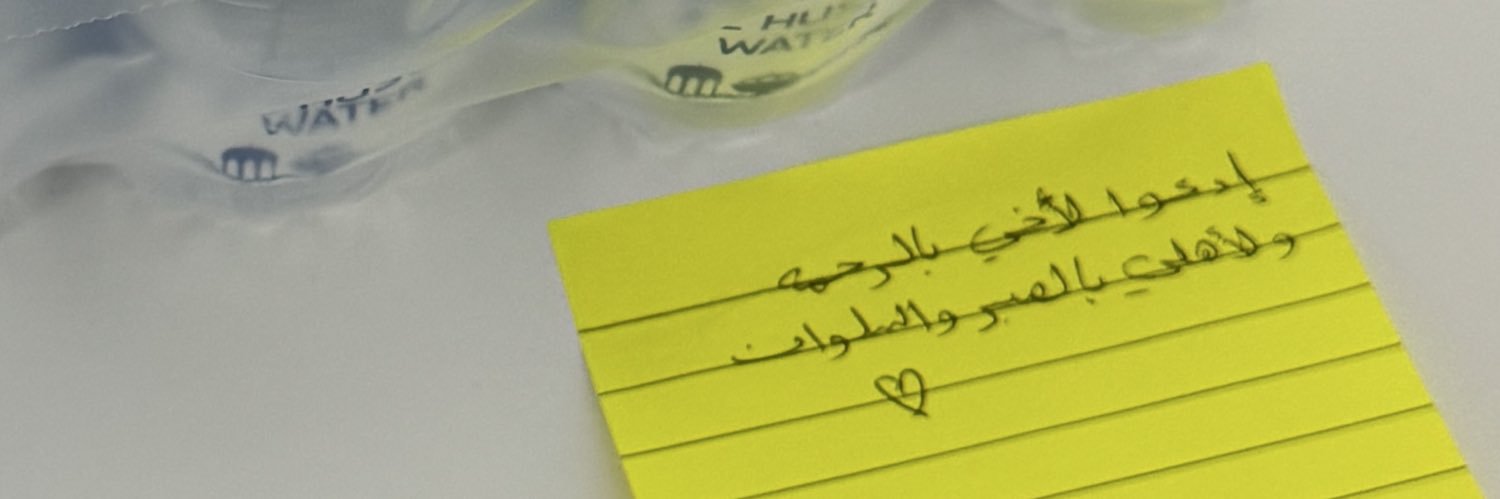 WATER
WATER
إدعوا لأخي بالرحمه
ولأهلي بالصبر والسلوان
♡